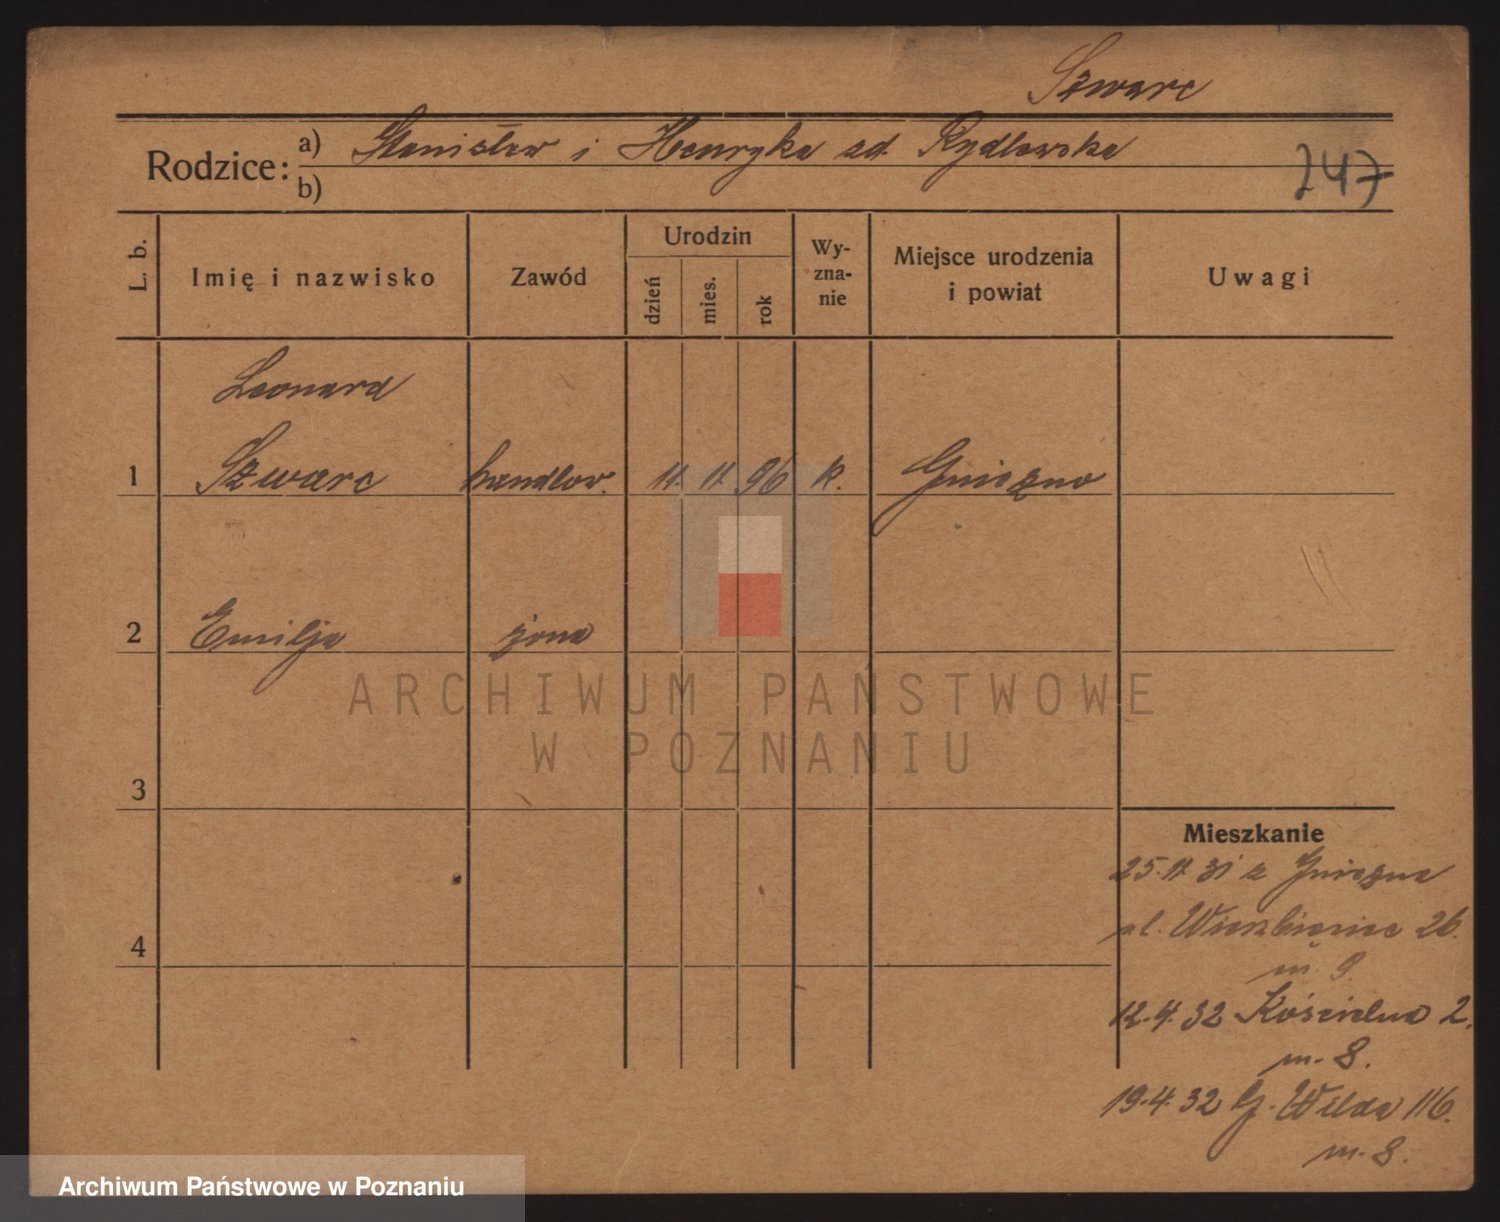 Szwarc
Rodzice:
a) Stanisław i Henryka zd. Rydlewska
b)
247
L. b.
Imię i nazwisko
Zawód
Urodzin
dzień
mies.
rok
Wy-
zna-
nie
Miejsce urodzenia
i powiat
Uwagi
Leonard
1 Szwarc handlow. 11. 11. 96 k. Gniezno
2 Emilja żona
ARCHIWUM PAŃSTWOWE
W POZNANIU
3
4
Mieszkanie
25.11.31 z Gniezna
ul. Wierzbięcice 26.
m. 9.
12.4.32 Kościelna 2.
m. 8.
19.4.32 G. Wilda 116.
m. 8.
Archiwum Państwowe w Poznaniu